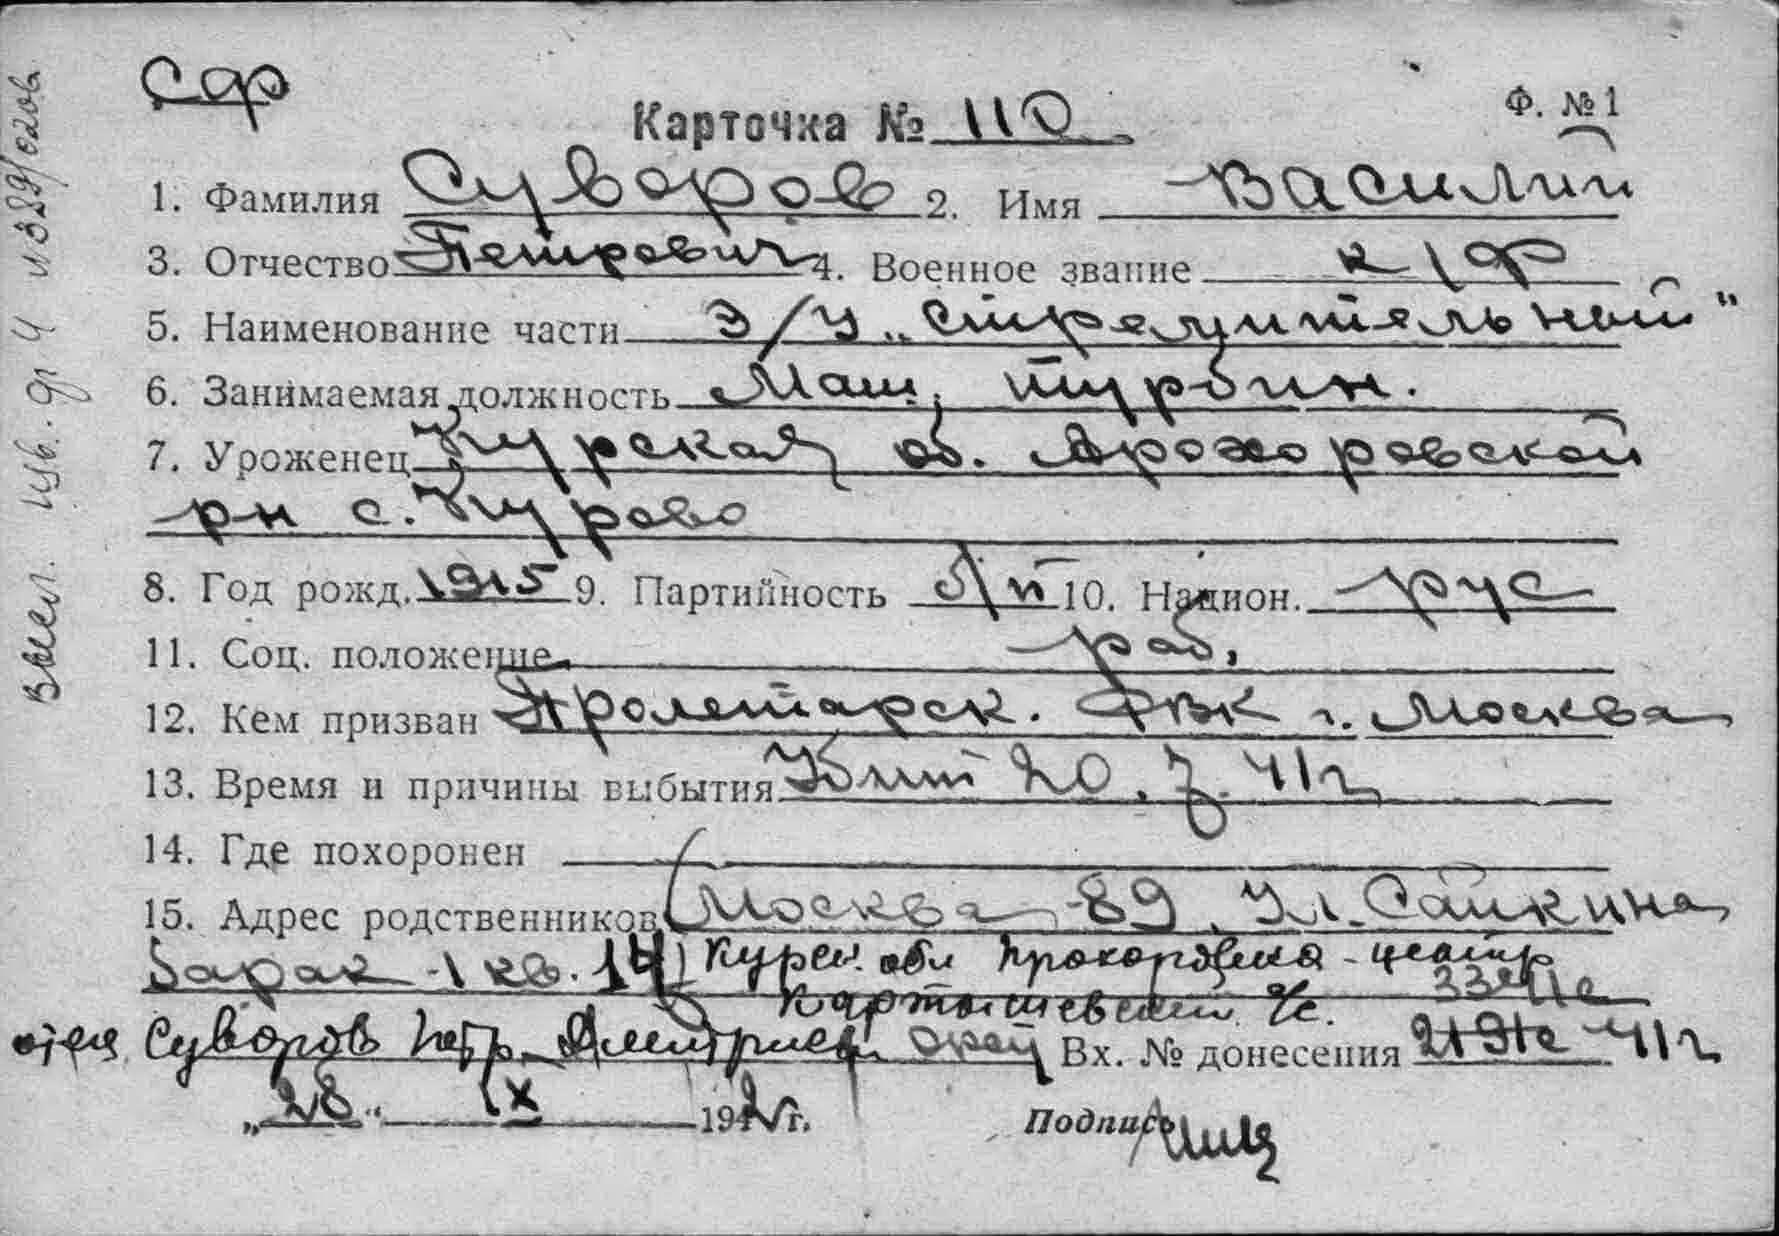 Сф
Карточка № 110 Ф. № 1
1. Фамилия Суворов 2. Имя Василий
3. Отчество Петрович 4. Военное звание к/ф
5. Наименование части Э/М „Стремительный"
6. Занимаемая должность Маш. турбин.
7. Уроженец Курская об. Прохоровской
рн с. Курово
8. Год рожд. 1915 9. Партийность б/п 10. Национ. рус
11. Соц. положение раб.
12. Кем призван Пролетарск. РВК г. Москва
13. Время и причины выбытия Убит 20.7.41г
14. Где похоронен
15. Адрес родственников (Москва 89, Ул. Сайкина
Барак-1 кв. 14) Курск. обл Прохоровка-центр
Картышевский с/с.
отец Суворов Петр Дмитриев Вх. № донесения 41г
„28" IX 1942 г. Подпись
Высл. изв. ф 4